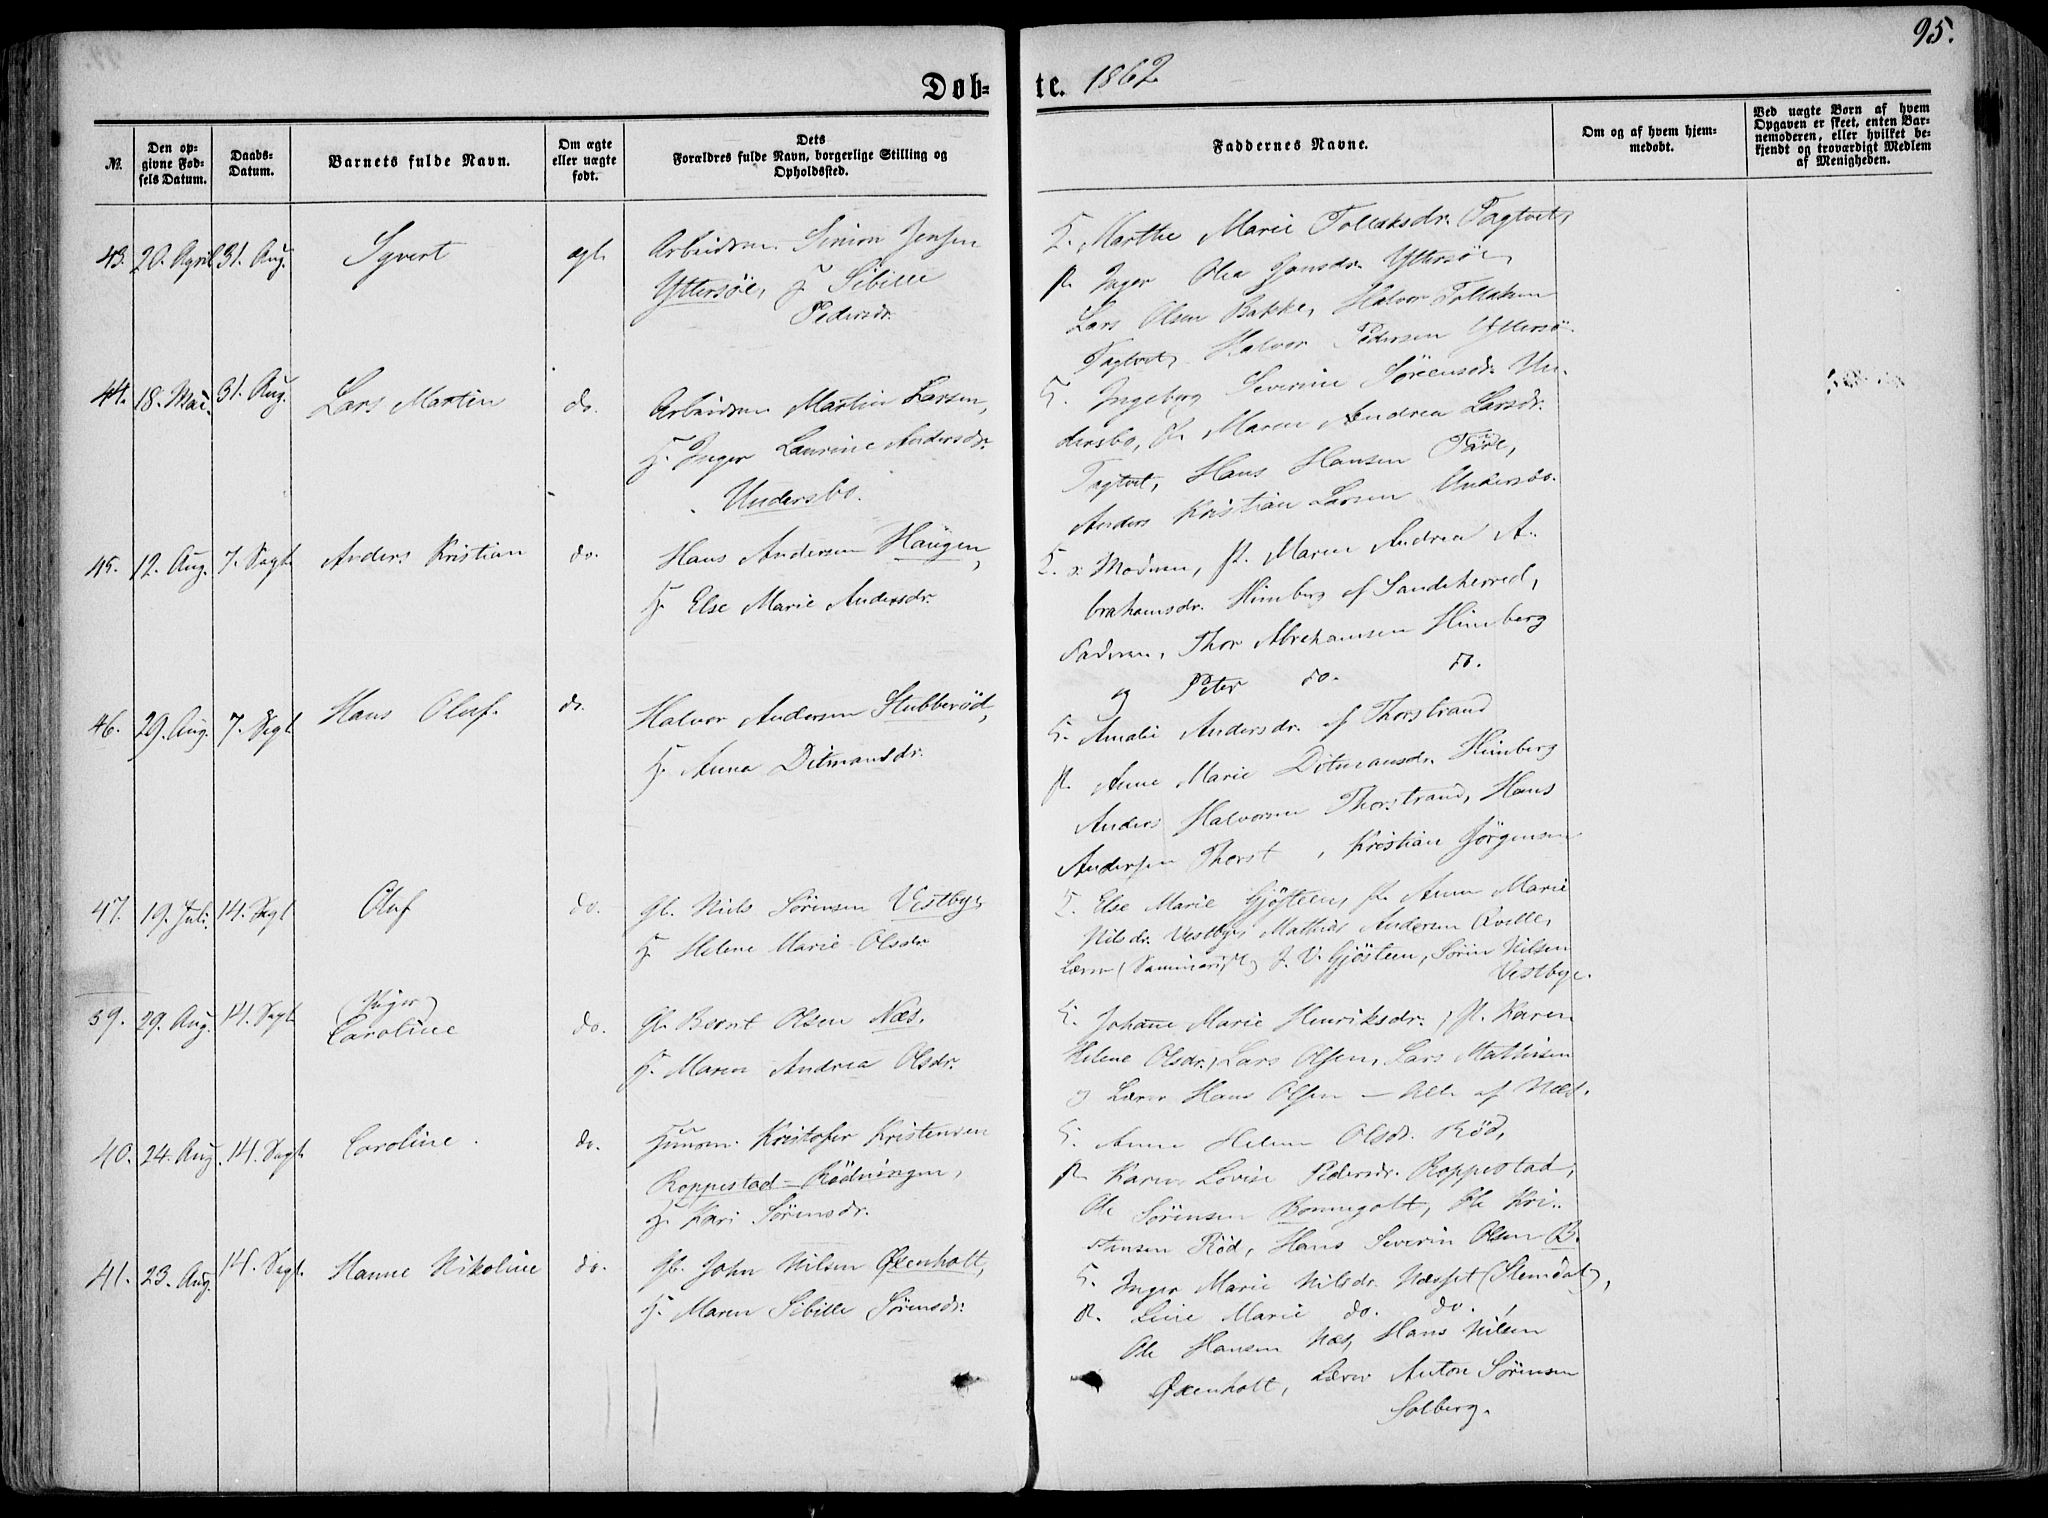 95.
Døb- te. 1862
№.
Den op-
givne Fød-
sels Datum.
Daabs-
Datum.
Barnets fulde Navn.
Om ægte
eller uægte
født.
Dets
Forældres fulde Navn, borgerlige Stilling og
Opholdssted.
Faddernes Navne.
Om og af hvem hjem-
medøbt.
Ved uægte Børn af hvem
Opgaven er skeet, enten Bar-
nemoderen, eller hvilket be-
kjendt og troværdigt Medlem
af Menigheden.
43. 20. April 31. Aug. Syvert ægt.
Arbeidsm. Simon Jensen
Yttersöe, H. Sibille
Pedersdr.
Marthe Marie Tollaksdr. Fagtvet,
Inger Olea Jansdr. Yttersöe,
Lars Olsen Bakke, Halvor Tollaksen
Fagtvet, Halvor Pedersen Yttersö.
44. 18. Mai. 31. Aug. Lars Martin do.
Arbeidsm. Martin Larsen,
H. Inger Laurine Andersdr.
Undersbo.
Ingeborg Severine Sörensdr. Un-
dersbo, fl. Maren Andrea Larsdr.
Fagtvet, Hans Hansen
Anders Kristian Larsen Undersbo.
45. 12. Aug. 7. Sept. Anders Kristian do.
Hans Andersen Haugen,
H. Else Marie Andersdr.
Moderen, fl. Maren Andrea A-
brahamsdr. Himberg af Sandeherred,
Faderen, Thor Abrahamsen Himberg
og Peter do. do.
46. 29. Aug. 7. Sept. Hans Oluf. do.
Halvor Andersen Stubberöd,
H. Anna Ditmansdr.
Amalie Andersdr. af Thorstrand
fl. Anne Marie Ditmansdr. Himberg
Anders Halvorsen Thorstrand, Hans
Andersen Thorst , Kristian Jörgensen
47. 19. Juli. 14. Sept. Oluf do.
Gb. Niels Sörensen Vestbye,
H. Helene Marie Olsdr.
Else Marie Gjösteen, fl. Anne Marie
Nilsdr. Vestbye, Mathias Andersen Qvelle,
Lærer (Seminarist) J. V. Gjösteen, Sören Nilsen
Vestbye.
39. 29. Aug. 14. Sept. (Piger)
Caroline do.
Gb. Bernt Olsen Næs,
H. Maren Andrea Olsdr.
Johanne Marie Henriksdr., fl. Karen
Helene Olsdr., Lars Olsen, Lars Mathisen
og Lærer Hans Olsen — Alle af Næs.
40. 24. Aug. 14. Sept. Caroline. do.
Huusm. Kristofer Kristensen
Roppestad-Rödningen,
H. Kari Sörensdr.
Anne Helene Olsdr. Röd,
fl. Karen Lovise Pedersdr. Roppestad,
Ole Sörensen Bommegolt, Ole Kri-
stensen Röd, Hans Severin Olsen B.
41. 23. Aug. 14. Sept. Hanne Nikoline do.
Gb. John Nilsen Øxenholt,
H. Maren Sibille Sörensdr.
Inger Marie Nilsdr. Næsset (Slemdal),
fl. Line Marie do. do.,
Ole Hansen Næs, Hans Nilsen
Øxenholt, Lærer Anton Sörensen
Solberg.